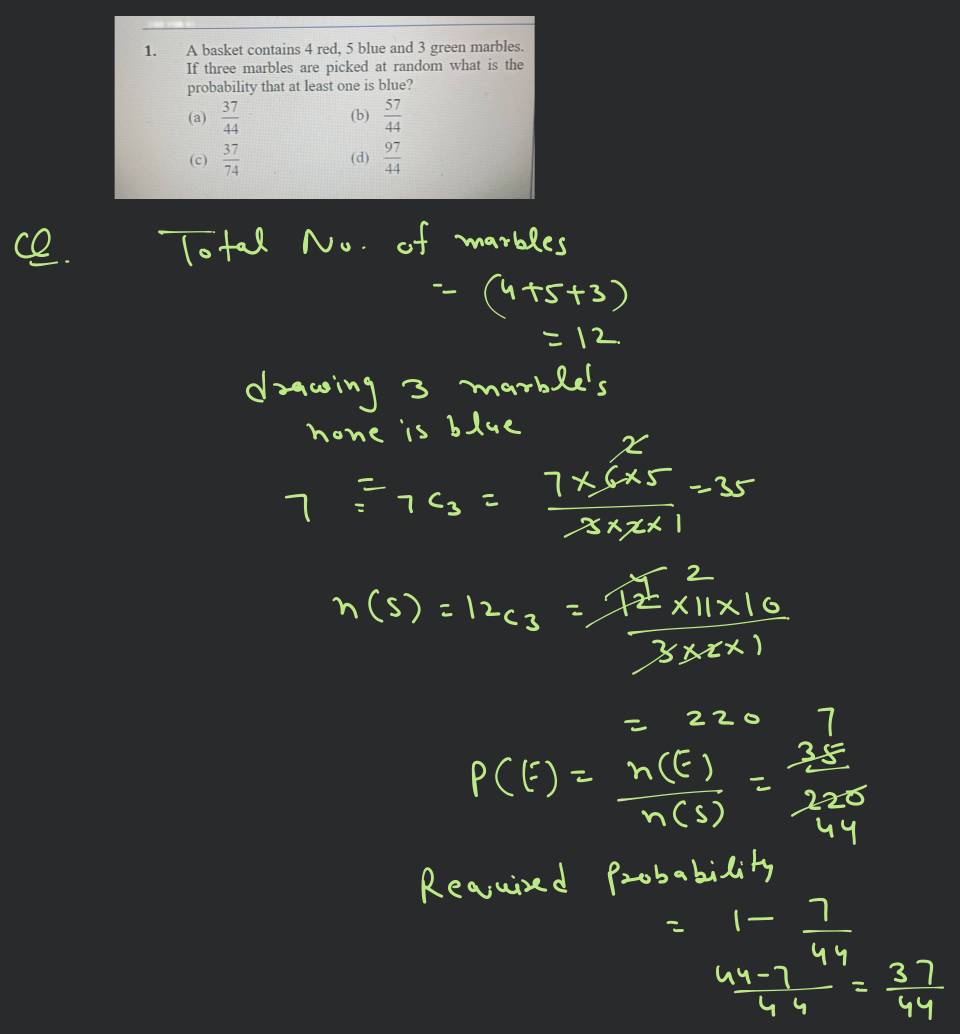 1. A basket contains 4 red, 5 blue and 3 green marbles.
If three marbles are picked at random what is the
probability that at least one is blue?
(a) 37/44 (b) 57/44
(c) 37/74 (d) 97/44
Total No. of marbles
= (4+5+3)
= 12.
drawing 3 marble's
none is blue
7 = 7C3 = 7×6×5/3×2×1 = 35
2
n(S) = 12C3 = 12×11×10/3×2×1
4 2
= 220
P(E) = n(E)/n(S) = 35/220
7
44
Required Probability
= 1 - 7/44
44-7/44 = 37/44